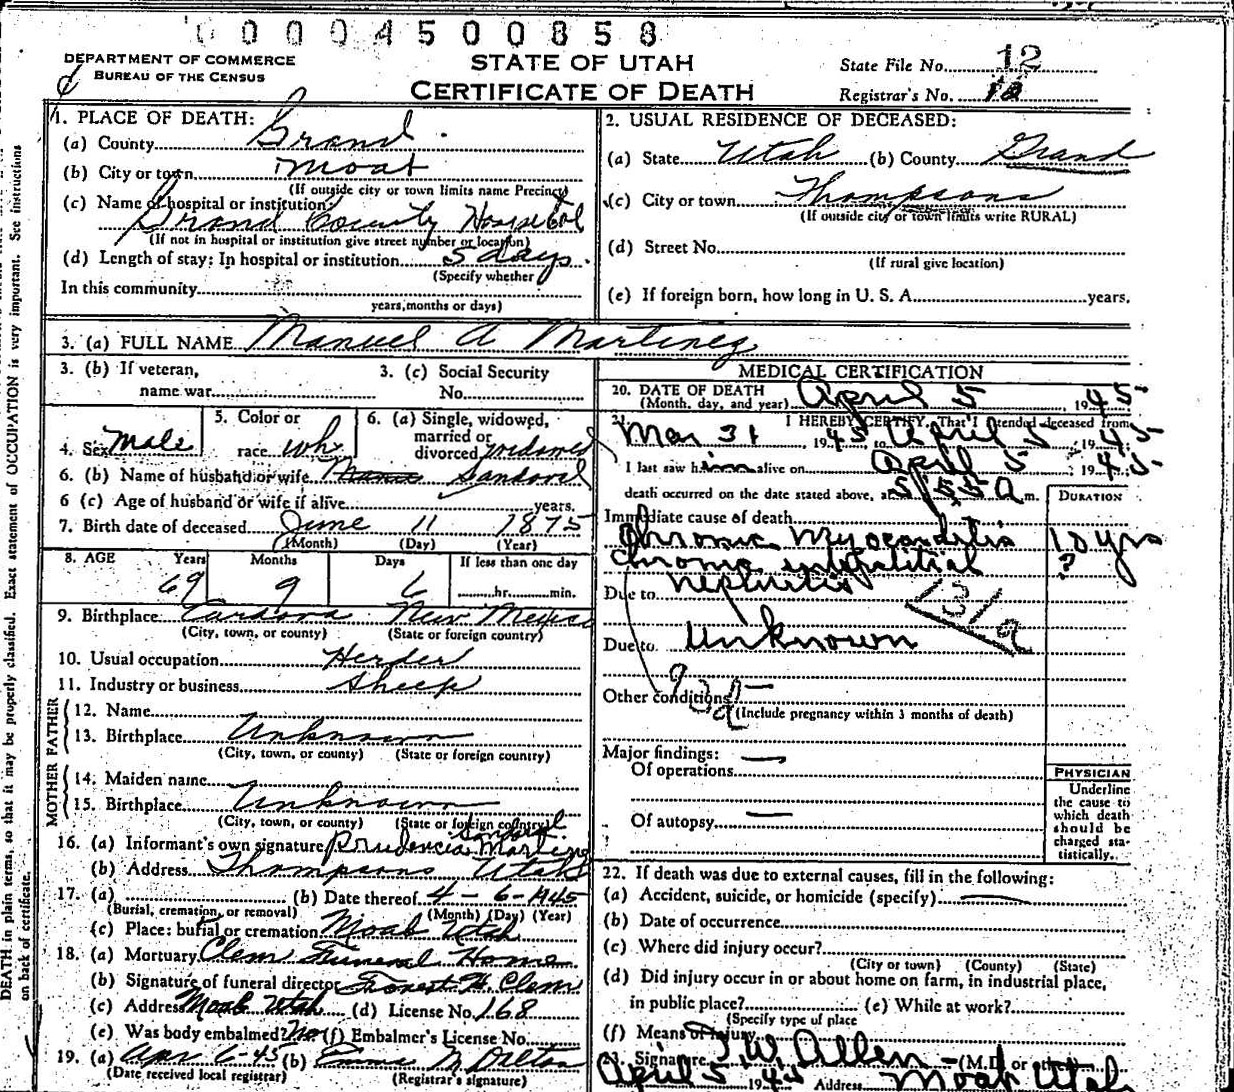 00004500858
DEPARTMENT OF COMMERCE
BUREAU OF THE CENSUS
STATE OF UTAH
CERTIFICATE OF DEATH
State File No. 12
Registrar's No. 12
1. PLACE OF DEATH:
(a) County Grand
(b) City or town Moab
(If outside city or town limits name Precinct)
(c) Name of hospital or institution:
Grand County Hospital
(If not in hospital or institution give street number or location)
(d) Length of stay: In hospital or institution 5 days.
(Specify whether
In this community
years, months or days)
2. USUAL RESIDENCE OF DECEASED:
(a) State Utah (b) County Grand
(c) City or town Thompsons
(If outside city or town limits write RURAL)
(d) Street No.
(If rural give location)
(e) If foreign born, how long in U. S. A. years.
3. (a) FULL NAME Manuel A Martinez
3. (b) If veteran,
name war
3. (c) Social Security
No.
4. Sex Male
5. Color or
race whi
6. (a) Single, widowed,
married or
divorced widowed
6. (b) Name of husband or wife Sandovel
6 (c) Age of husband or wife if alive years.
7. Birth date of deceased June 11 1875
(Month) (Day) (Year)
8. AGE Years Months Days If less than one day
69 9 6 hr. min.
9. Birthplace Cordova New Mexico
(City, town, or county) (State or foreign country)
10. Usual occupation Herder
11. Industry or business Sheep
FATHER
12. Name
13. Birthplace Unknown
(City, town, or county) (State or foreign country)
MOTHER
14. Maiden name
15. Birthplace Unknown
(City, town, or county) (State or foreign country)
16. (a) Informant's own signature Prudencia Sandoval Martinez
(b) Address Thompsons Utah
17. (a) (b) Date thereof 4-6-1945
(Burial, cremation, or removal) (Month) (Day) (Year)
(c) Place: burial or cremation Moab Utah
18. (a) Mortuary Clem Funeral Home
(b) Signature of funeral director Forest H. Clem
(c) Address Moab Utah (d) License No. 168
(e) Was body embalmed? No (f) Embalmer's License No.
19. (a) Apr 6-45 (b) Emma M. Dalton
(Date received local registrar) (Registrar's signature)
MEDICAL CERTIFICATION
20. DATE OF DEATH
(Month, day, and year) April 5, 1945
21. I HEREBY CERTIFY, That I attended deceased from
Mar 31 1945 to April 5, 1945
I last saw him alive on April 5, 1945
death occurred on the date stated above, at 5:55 a m.
DURATION
Immediate cause of death
Chronic Myocarditis 10 yrs
Chronic interstitial ?
Due to nephritis
131a
Due to unknown
93d
Other conditions —
(Include pregnancy within 3 months of death)
Major findings: —
Of operations
Of autopsy —
PHYSICIAN
Underline
the cause to
which death
should be
charged sta-
tistically.
22. If death was due to external causes, fill in the following:
(a) Accident, suicide, or homicide (specify) —
(b) Date of occurrence
(c) Where did injury occur?
(City or town) (County) (State)
(d) Did injury occur in or about home on farm, in industrial place,
in public place? (e) While at work?
(Specify type of place
(f) Means of injury
23. Signature I.W. Allen - (M.D. or other)
April 5 1945 Address Moab Utah
DEATH in plain terms, so that it may be properly classified. Exact statement of OCCUPATION is very important. See instructions
on back of certificate.